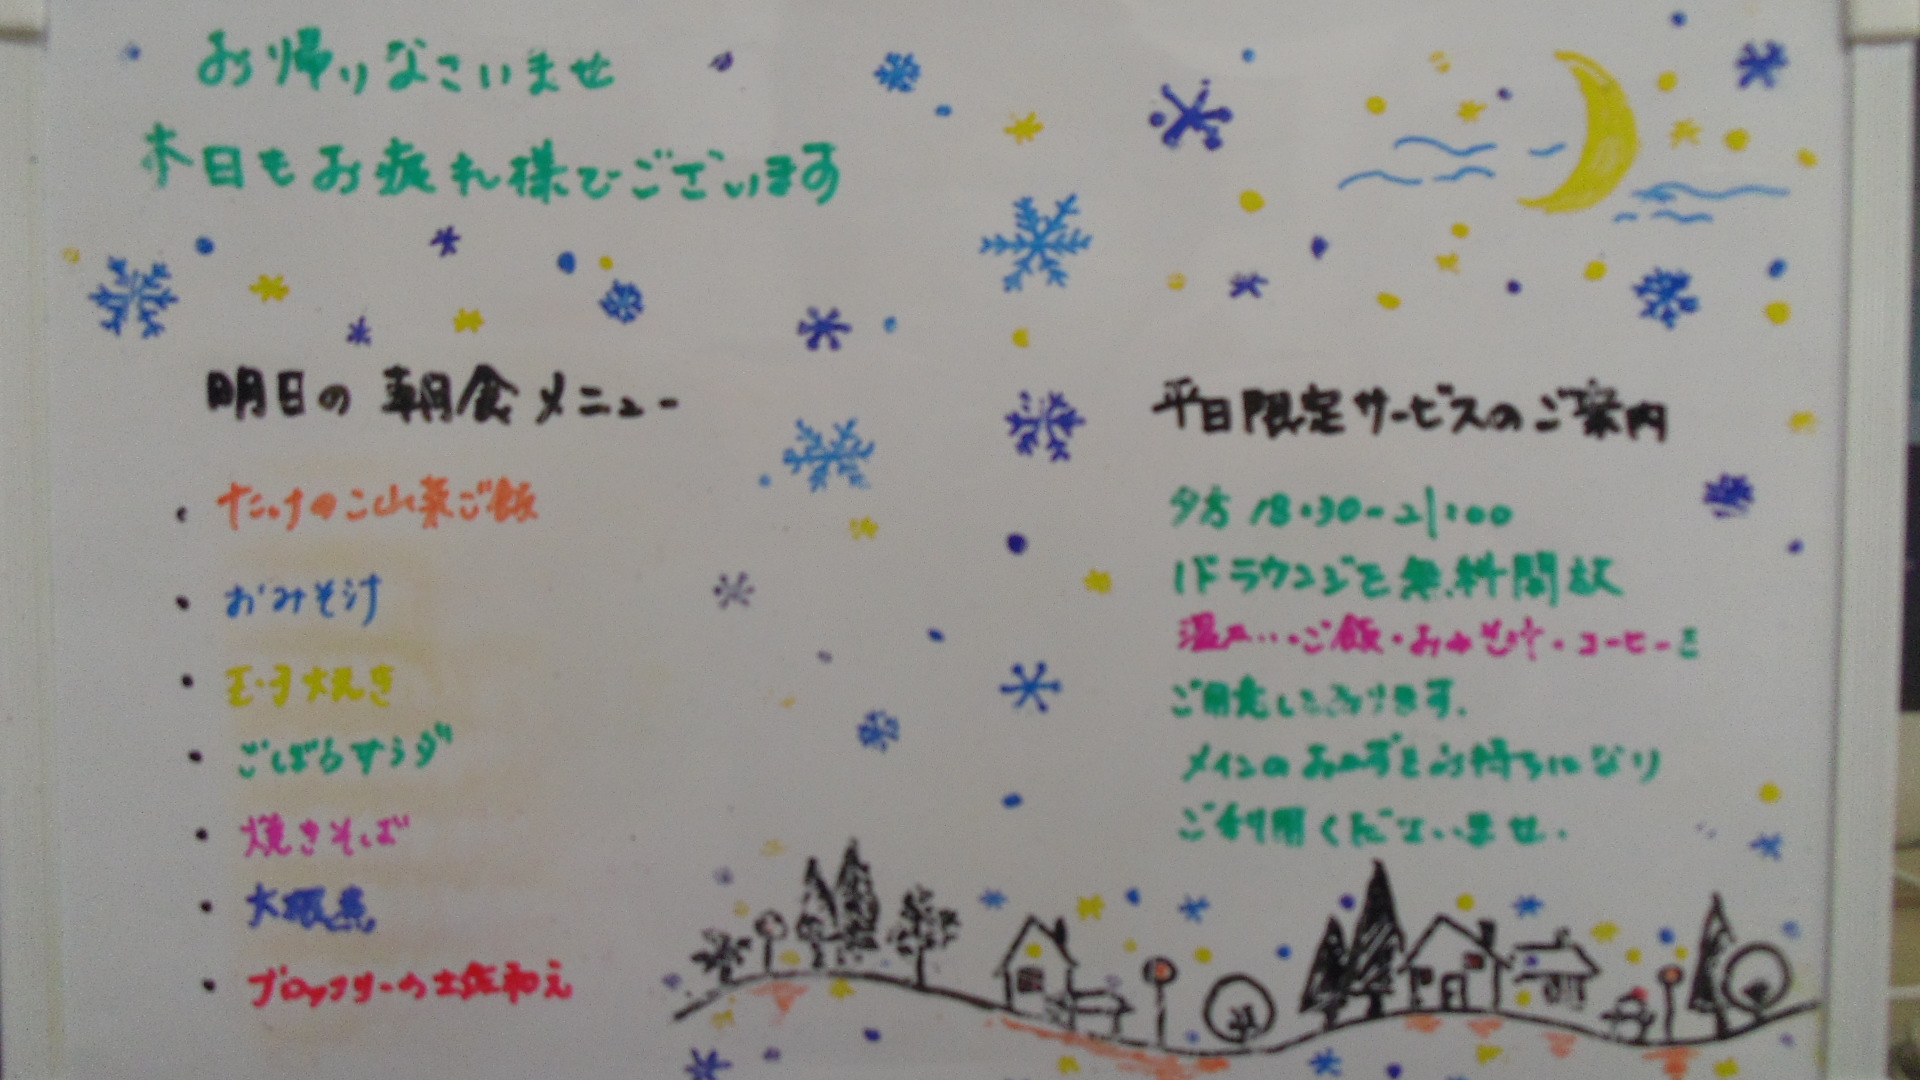 お帰りなさいませ
本日もお疲れ様でございます
明日の 朝食メニュー
・たけのこ山菜ご飯
・おみそ汁
・玉子焼き
・ごぼうサラダ
・焼きそば
・大根煮
・ブロッコリーの土佐和え
平日限定サービスのご案内
夕方 18:30-21:00
1Fラウンジを無料開放
ご飯・おみそ汁・コーヒーを
ご用意しております.
メインのおかずをお持ちになり
ご利用くださいませ.